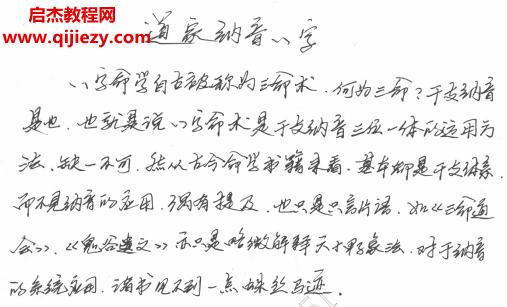 启杰教程网
www.qijiezy.com
道家纳音八字
八字命学自古被称为三命术，何为三命？干支纳音
是也，也就是说八字命术是干支纳音三位一体的运用方
法，缺一不可，然从古今命学书籍来看，基本都是干支体系，
而不见纳音的应用，偶有提及，也只是只言片语，如《三命通
会》，《鬼谷遗文》亦只是略微解释天干取象法，对于纳音
的系统应用，诸书见不到一点蛛丝马迹。